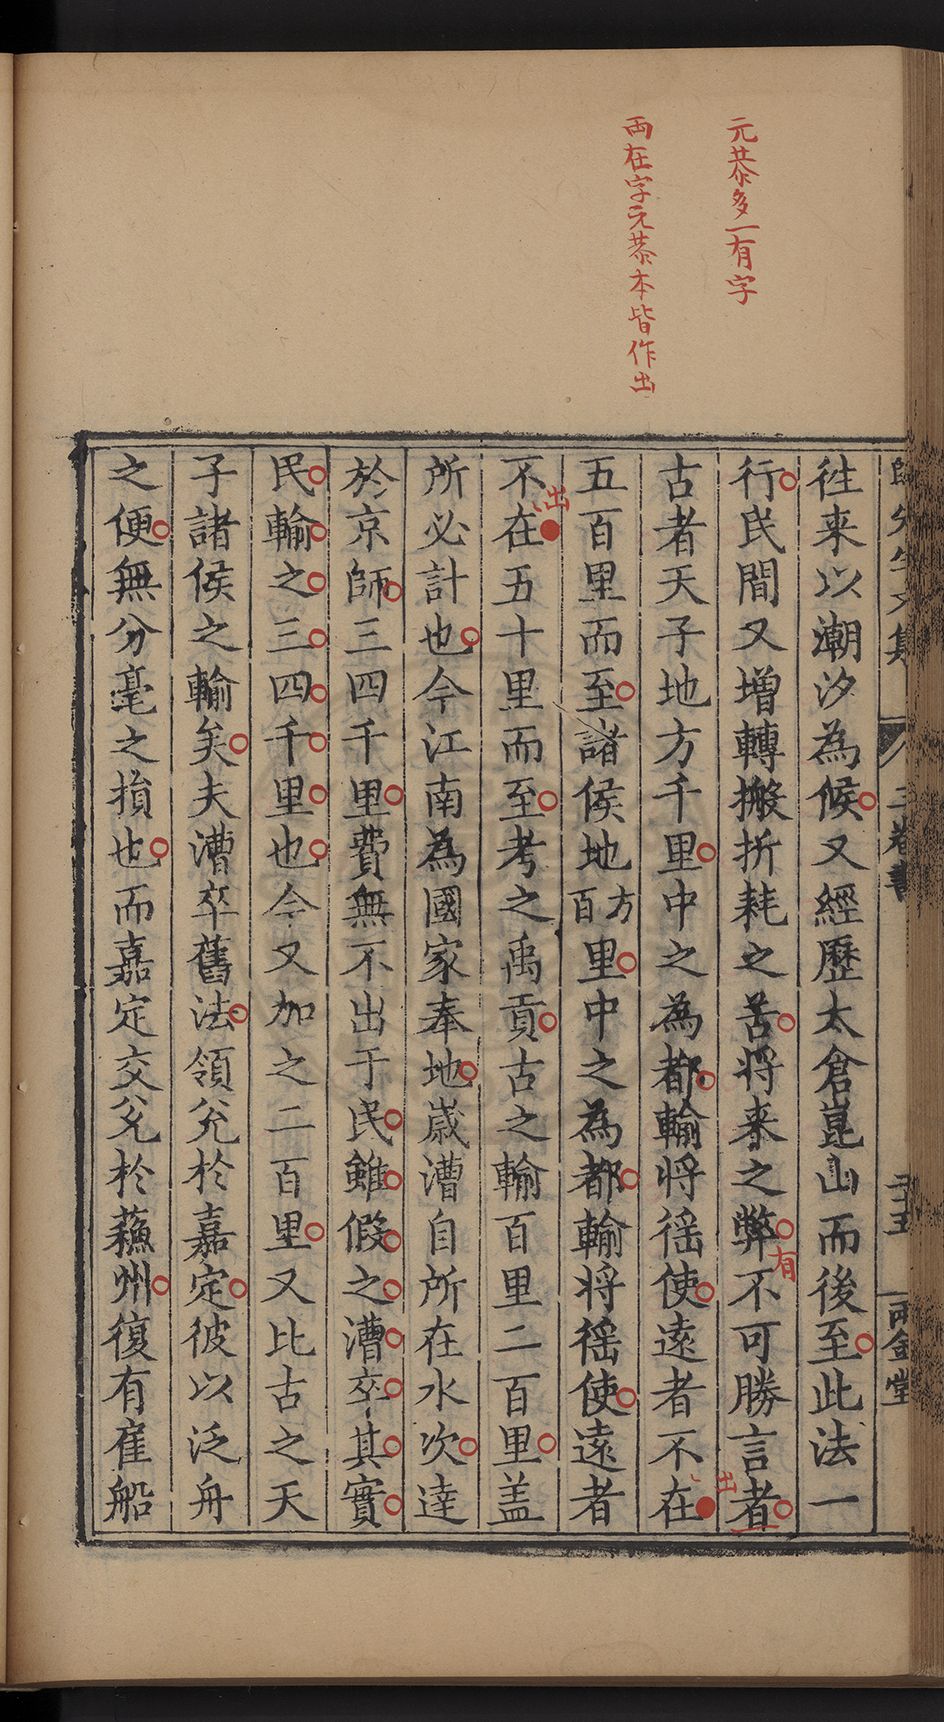 元恭多一有字
兩在字元恭本皆作出
徃来以潮汐為候又經歷太倉崑山而後至此法一
行民間又增轉搬折耗之苦將来之弊不可勝言者
有
古者天子地方千里中之為都輸將徭使遠者不在
出
五百里而至諸侯地方百里中之為都輸將徭使遠者
不在五十里而至考之禹貢古之輸百里二百里盖
出
所必計也今江南為國家奉地歲漕自所在水次達
於京師三四千里費無不出于民雖假之漕卒其實
民輸之三四千里也今又加之二百里又比古之天
子諸侯之輸矣夫漕卒舊法領兊於嘉定彼以泛舟
之便無分毫之損也而嘉定交兊於蘓州復有雇船
先生文集
二卷書
兩金堂